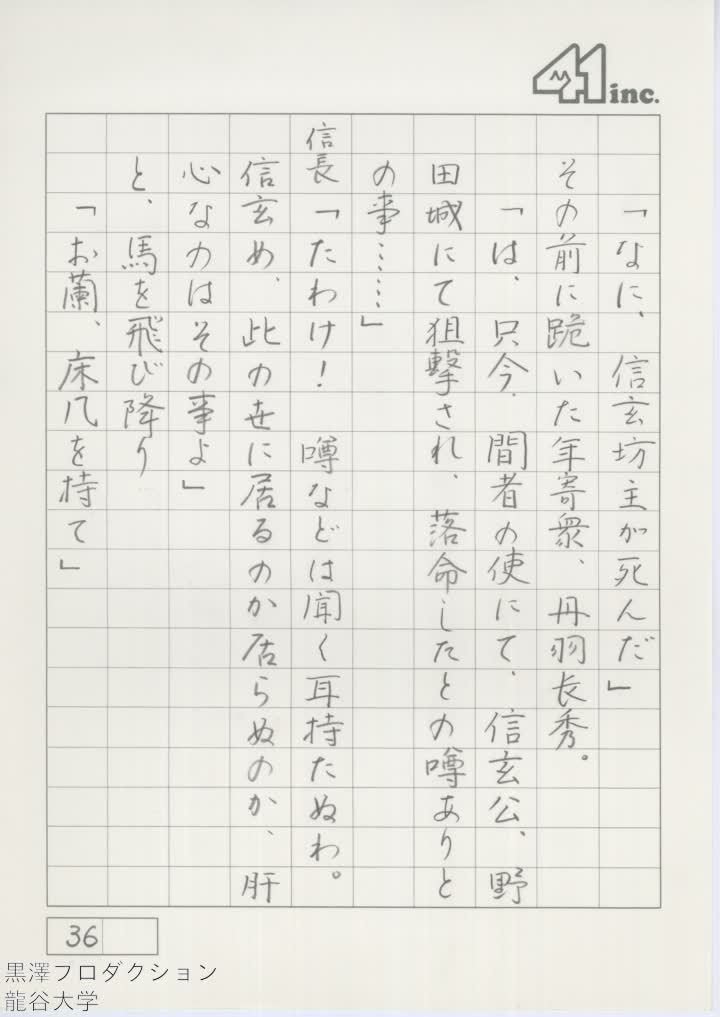 41 inc.
「なに、信玄坊主が死んだ」
その前に跪いた年寄衆、丹羽長秀。
「は、只今、間者の使にて、信玄公、野
田城にて狙撃され、落命したとの噂ありと
の事……」
信長「たわけ! 噂などは聞く耳持たぬわ。
信玄め、此の世に居るのか居らぬのか、肝
心なのはその事よ」
と、馬を飛び降り
「お蘭、床几を持て」
36
黒澤プロダクション
龍谷大学